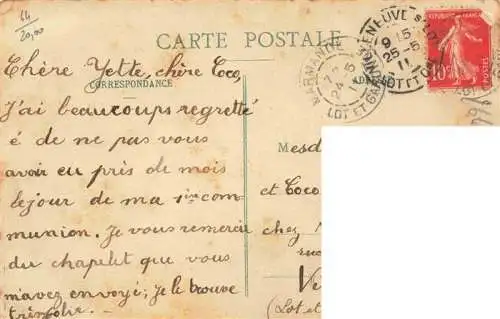 44
20,00
CARTE POSTALE
CORRESPONDANCE
Chère Yette, chère Coco,
J'ai beaucoups regretté
é de ne pas vous
avoir eu près de mois
le jour de ma 1ière com-
munion. Je vous remercie
du chapelet que vous
m'avez envoyé; je le trouve
très jolie.
ADRESSE
Mesd
et Coco
chez
rue
Vi
(Lot et
MARMANDE
7
24 5
11
LOT ET GAR
VILLENEUVE S-LOT
9 15
25-5
11
LOT ET G
REPUBLIQUE FRANÇAISE
10c